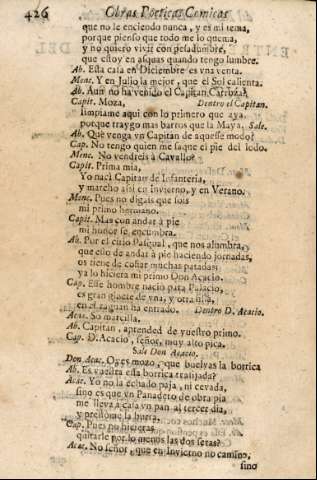 426 Obras Poeticas Comicas
que no le enciendo nunca, y es mi tema,
porque pienso que todo me lo quema,
y no quiero vivir con pesadumbre,
que estoy en asquas quando tengo lumbre.
Ab. Esta casa en Diciembre es vna venta.
Menc. Y en Julio la mejor, que el Sol calienta.
Ab. Aun no ha venido el Capitan Carroza?
Capit. Moza, Dentro el Capitan.
limpiame aqui con lo primero que aya,
porque traygo mas barros que la Maya. Sale.
Ab. Què venga vn Capitan de aquesse modo?
Cap. No tengo quien me saque el pie del lodo.
Menc. No vendreis à Cavallo?
Capit. Prima mia,
Yo nací Capitan de Infanteria,
y marcho assi en Invierno, y en Verano.
Menc. Pues no digais que sois
mi primo hermano.
Capit. Mas con andar à pie
mi honor se encumbra.
Ab. Por el cirio Pasqual, que nos alumbra,
que esto de andar à pie haciendo jornadas,
os tiene de costar muchas patadas:
ya lo hiciera mi primo Don Acacio.
Cap. Esse hombre naciò para Palacio,
es gran gloria de vna, y otra
en el zaguan ha entrado. Dentro D. Acacio.
Acac. So marcilla.
Ab. Capitan, aprended de vuestro primo.
Cap. D. Acacio, señor, muy alto pica.
Sale Don Acacio.
Don Acac. Oyes mozo, que buelvas la borrica
Ab. Es vuestra essa borrica
Acac. Yo no la echado paja, ni cevada,
sino es que vn Panadero de obra pia
me lleva à casa vn pan al tercer dia,
y prestòme la burra.
Cap. Pues no hicieras
quitarle por lo menos las dos seras?
Acac. No señor, que en Invierno no camino,
sino